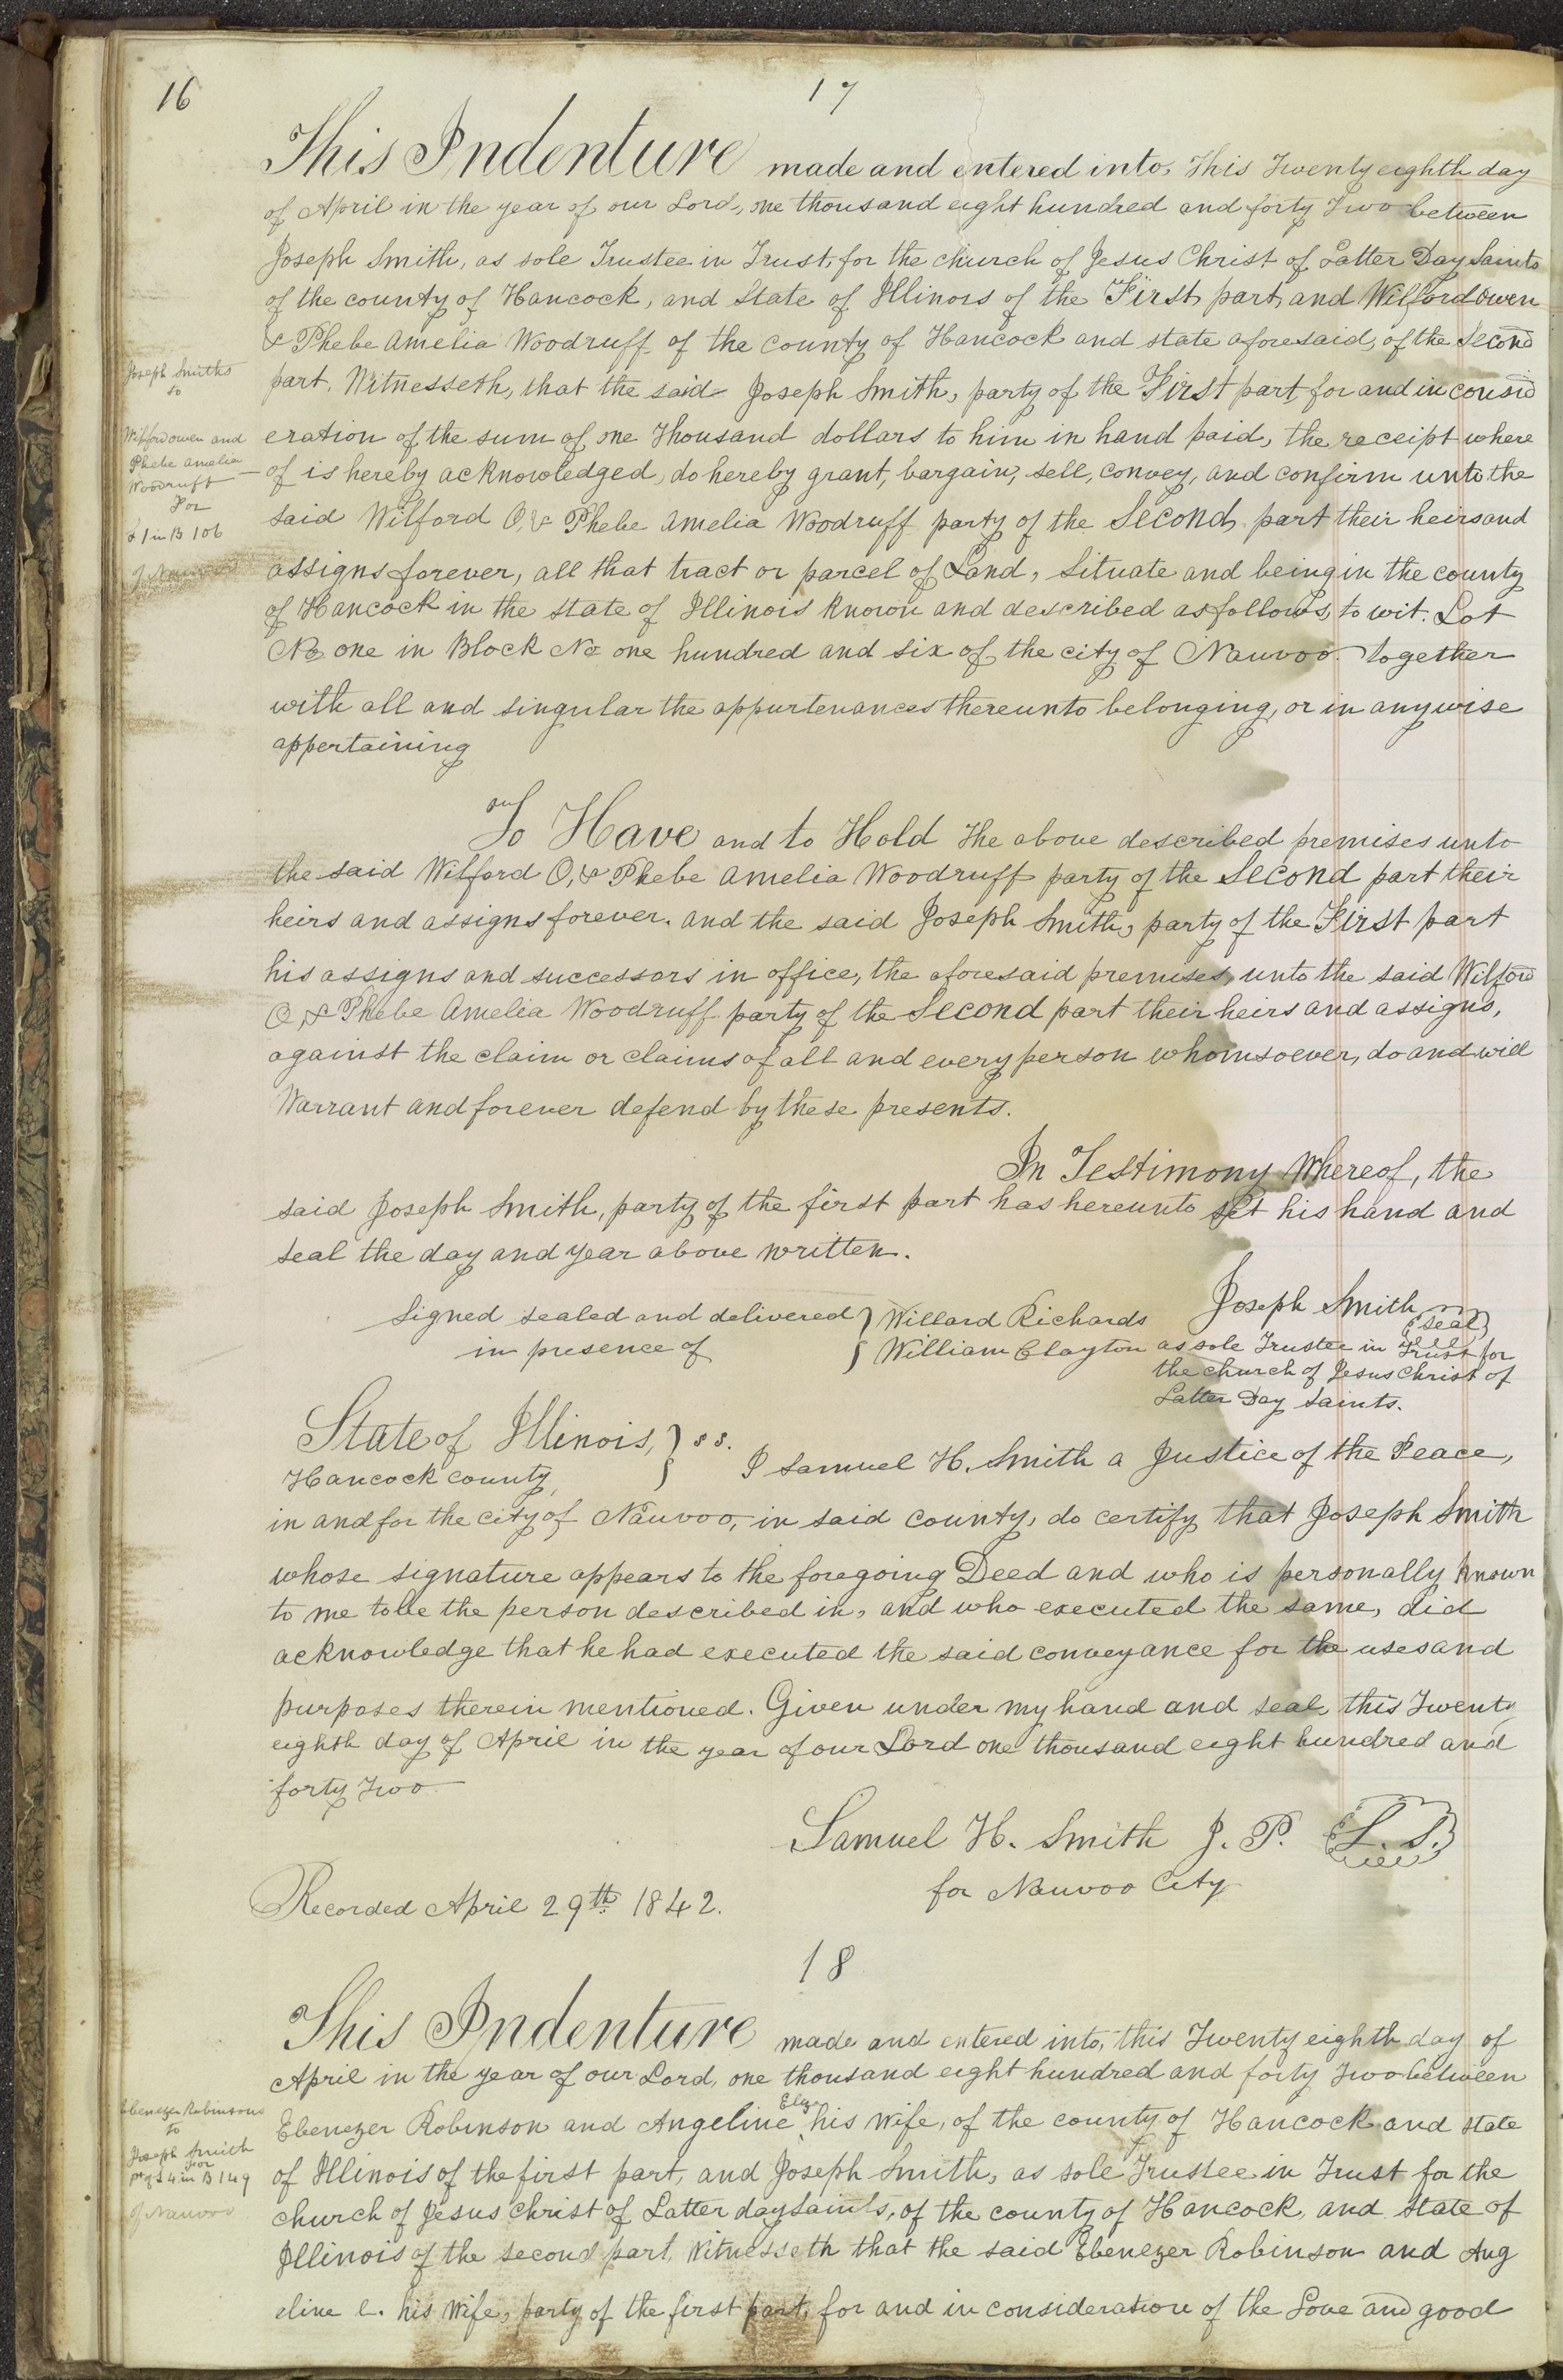 16
17
This Indenture made and entered into, This Twenty eighth day
of April in the year of our Lord, one thousand eight hundred and forty Two between
Joseph Smith, as sole Trustee in Trust, for the church of Jesus Christ of Latter Day Saints
of the county of Hancock, and State of Illinois of the First part, and Wilford Owen
& Phebe Amelia Woodruff of the county of Hancock and state aforesaid, of the Second
part. Witnesseth, that the said Joseph Smith, party of the First part, for and in consid
eration of the sum of one Thousand dollars to him in hand paid, the receipt where
of is hereby acknowledged, do hereby grant, bargain, sell, convey, and confirm unto the
said Wilford O, & Phebe Amelia Woodruff party of the Second part their heirs and
assigns forever, all that tract or parcel of Land, Situate and being in the county
of Hancock in the state of Illinois known and described as follows, to wit. Lot
No one in Block No one hundred and six of the city of Nauvoo. Together
with all and singular the appurtenances thereunto belonging, or in any wise
appertaining
Joseph Smiths
to
Wilford owen and
Phebe Amelia
Woodruff
For
L 1 in B 106
of Nauvoo
To Have and to Hold The above described premises unto
the said Wilford O, & Phebe Amelia Woodruff party of the Second part their
heirs and assigns forever. and the said Joseph Smith, party of the First part
his assigns and successors in office, the aforesaid premises, unto the said Wilford
O, & Phebe Amelia Woodruff party of the Second part their heirs and assigns,
against the claim or claims of all and every person whomsoever, do and will
Warrant and forever defend by these presents.
In Testimony Whereof, the
said Joseph Smith, party of the first part has hereunto set his hand and
seal the day and year above written.
Signed sealed and delivered } Willard Richards Joseph Smith (seal)
in presence of } William Clayton as sole Trustee in Trust for
the church of Jesus Christ of
Latter Day Saints.
State of Illinois, } ss.
Hancock county, } I Samuel H. Smith a Justice of the Peace,
in and for the city of Nauvoo, in said county, do certify that Joseph Smith
whose signature appears to the foregoing Deed and who is personally known
to me to be the person described in, and who executed the same, did
acknowledge that he had executed the said conveyance for the uses and
purposes therein mentioned. Given under my hand and seal, this Twenty
eighth day of April in the year of our Lord one thousand eight hundred and
forty Two
Samuel H. Smith J. P. L. S.
for Nauvoo City
Recorded April 29th 1842.
18
This Indenture made and entered into, this Twenty eighth day of
April in the year of our Lord, one thousand eight hundred and forty Two between
Elz
Ebenezer Robinson and Angeline his wife, of the county of Hancock and state
of Illinois of the first part, and Joseph Smith, as sole Trustee in Trust for the
church of Jesus Christ of Latter day Saints, of the county of Hancock, and State of
Illinois of the second part, Witnesseth that the said Ebenezer Robinson and Ang
eline E. his Wife, party of the first part, for and in consideration of the Love and good
Ebenezer Robinsons
to
Joseph Smith
for
pt of L 4 in B 149
of Nauvoo